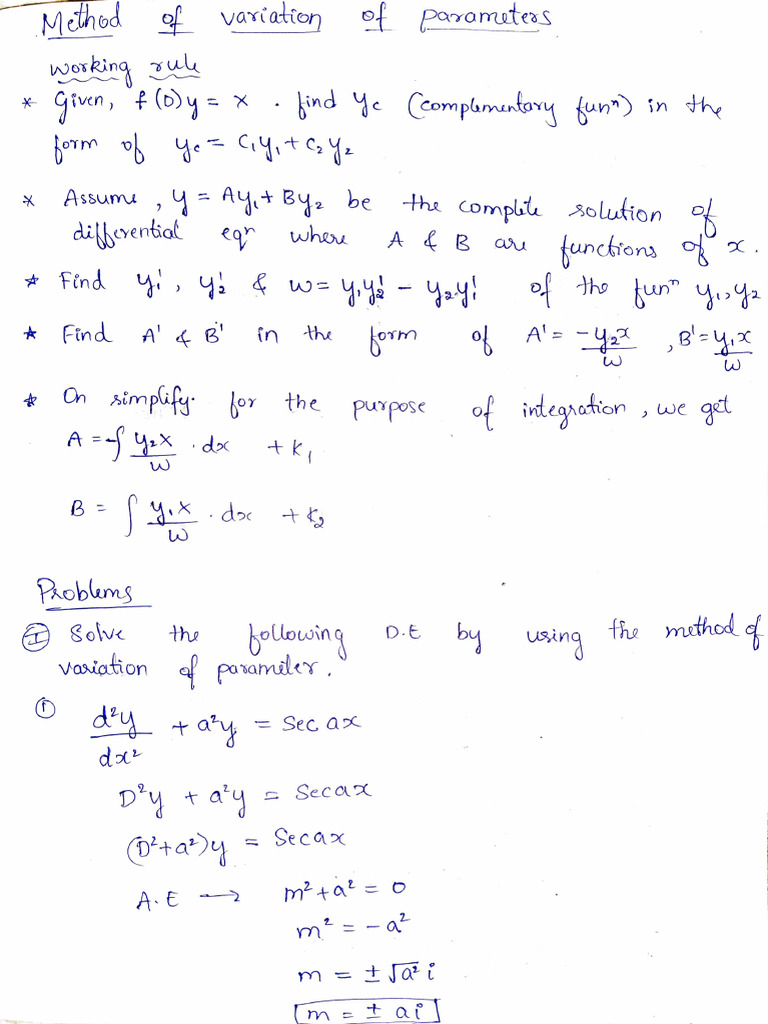 Method of variation of parameters
working rule
* Given, f(D)y = x . find yc (complementary funⁿ) in the
form of yc = C₁y₁ + C₂y₂
* Assume, y = Ay₁ + By₂ be the complete solution of
differential eqⁿ where A & B are functions of x.
* Find y₁', y₂' & w = y₁y₂' - y₂y₁' of the funⁿ y₁, y₂
* Find A' & B' in the form of A' = -y₂x/w , B' = y₁x/w
* On simplify. for the purpose of integration, we get
A = -∫ y₂x/w . dx + k₁
B = ∫ y₁x/w . dx + k₂
Problems
Ⓘ Solve the following D.E by using the method of
variation of parameter.
① d²y/dx² + a²y = Sec ax
D²y + a²y = Sec ax
(D²+a²)y = Sec ax
A.E → m² + a² = 0
m² = -a²
m = ± √a² i
m = ± ai